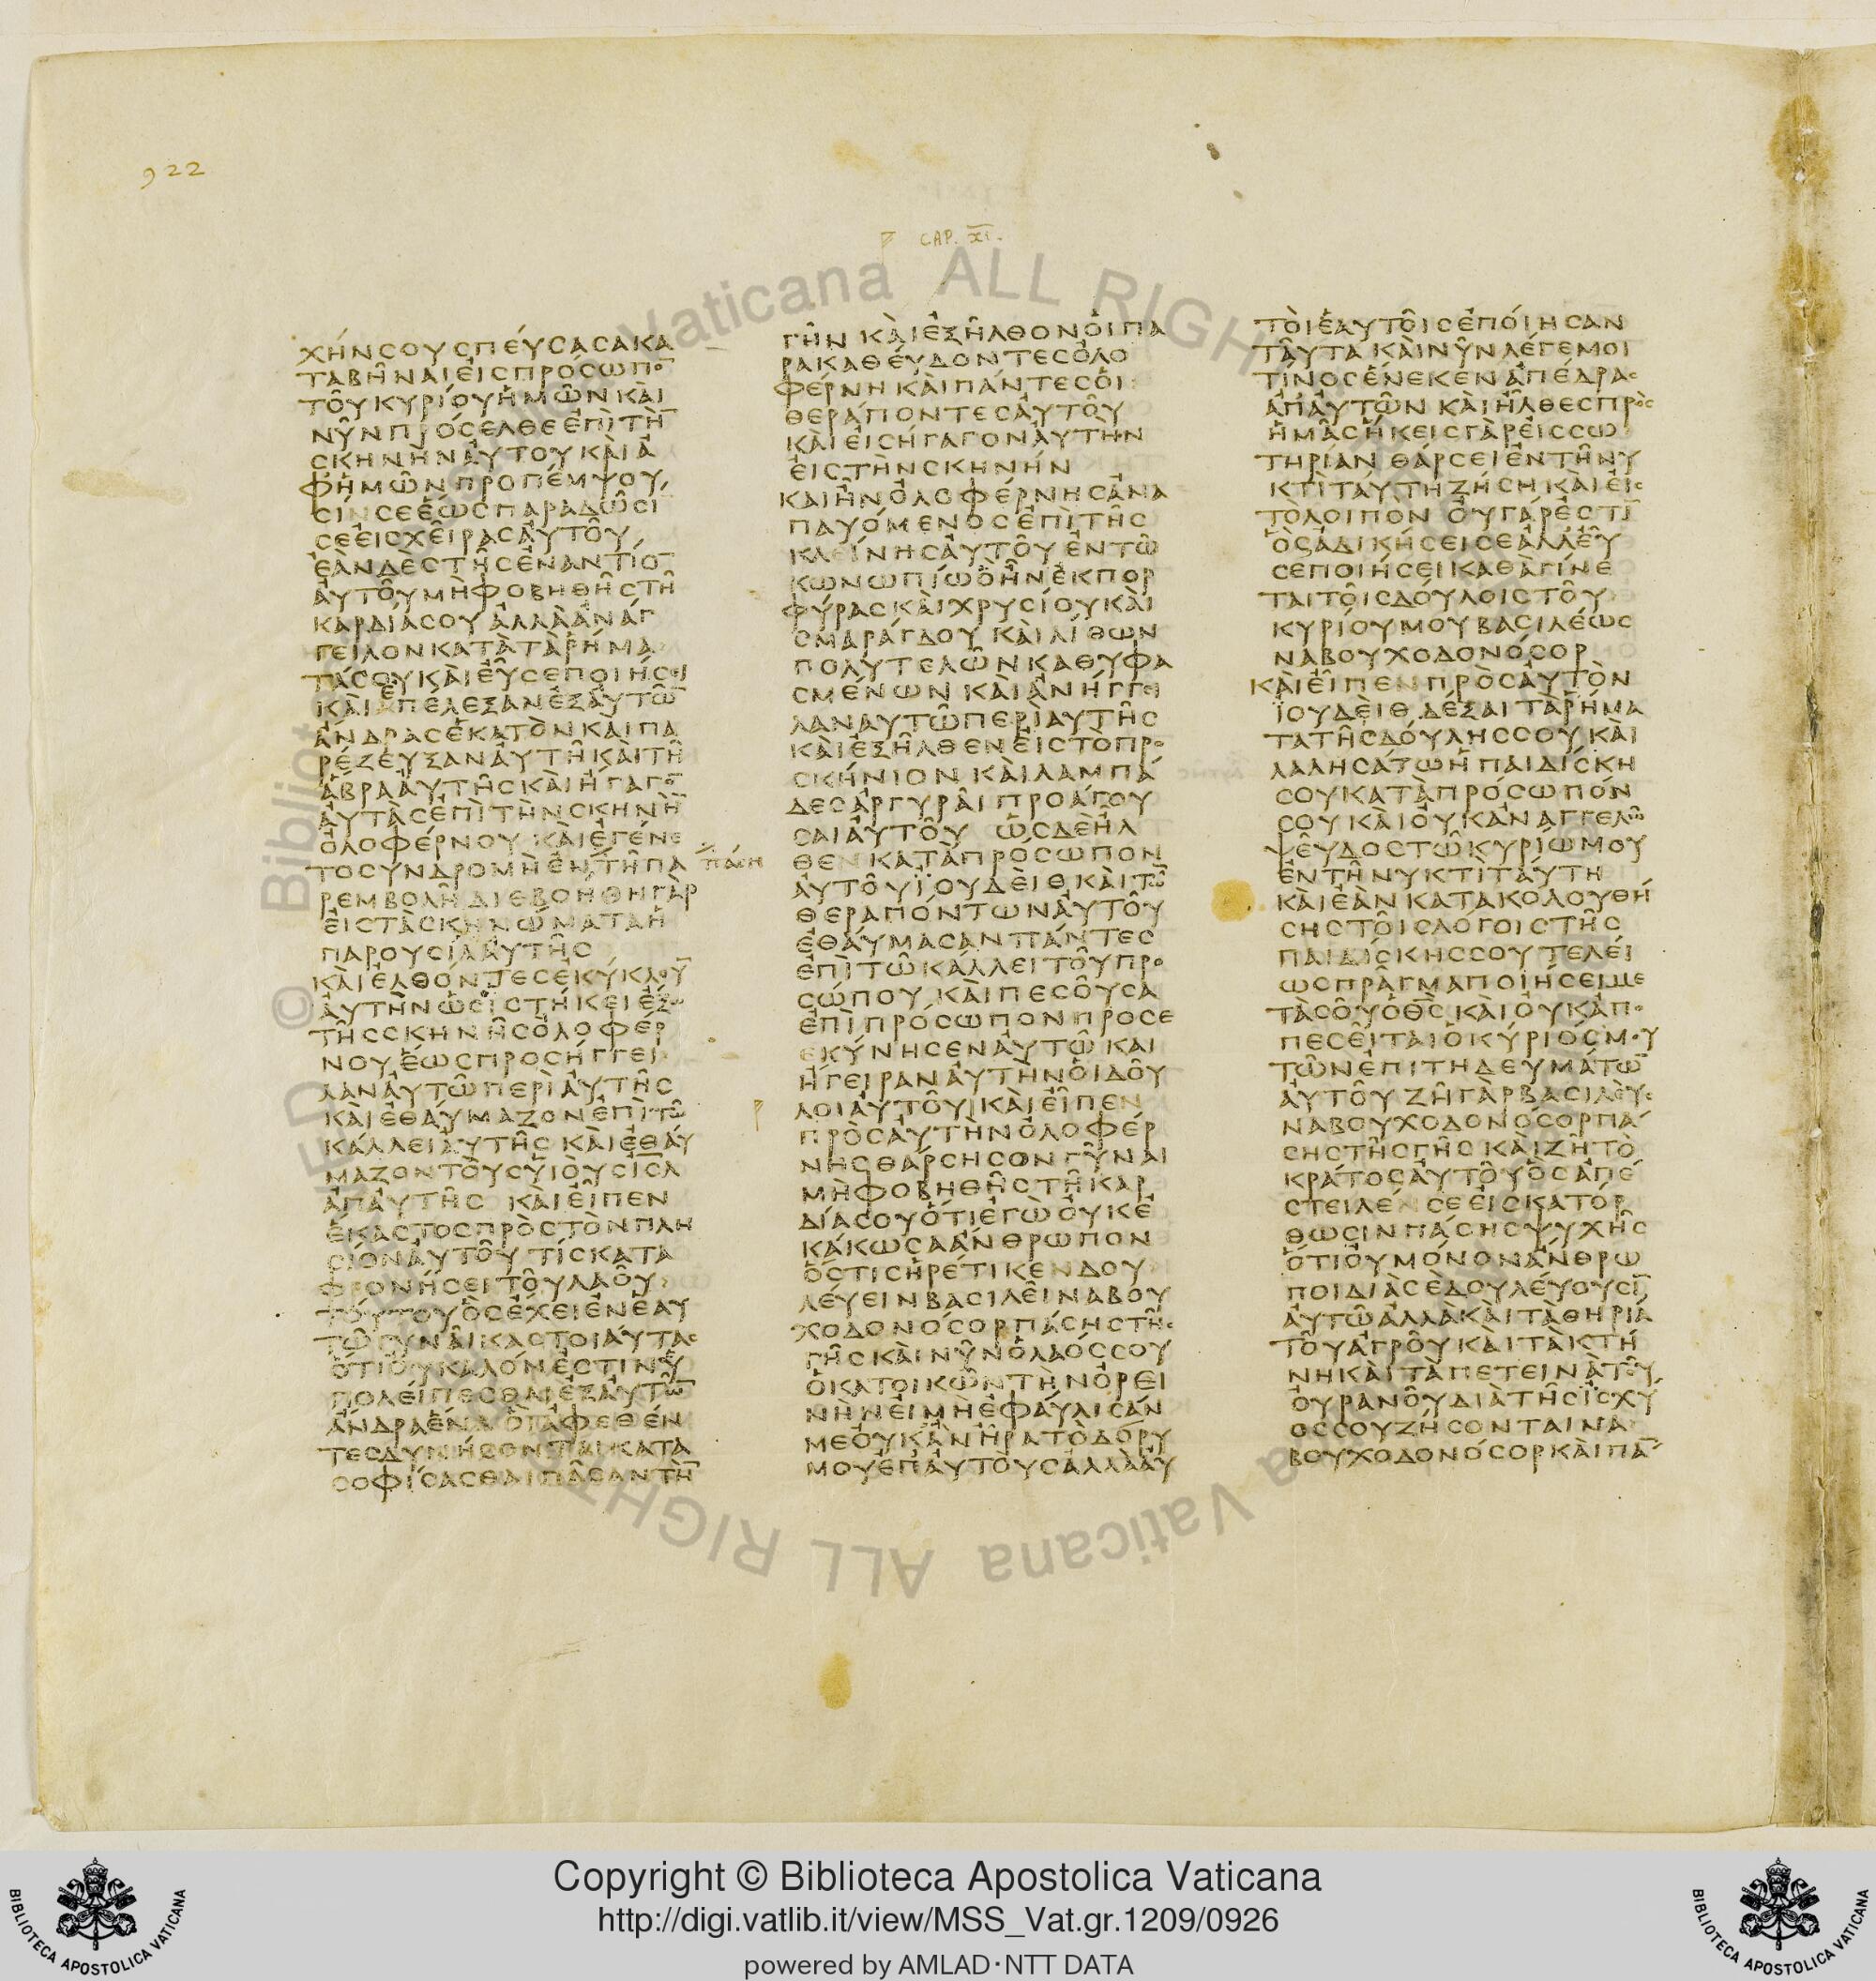 922
CAP. XI.
ΧΉΝϹΟΥϹΠΕΎϹΑϹΑΚΑ
ΤΑΒΗ͂ΝΑΙΕἸϹΠΡΌϹΩΠΟ̅
ΤΟΥ͂ΚΥΡΊΟΥἩΜΩ͂ΝΚΑῚ
ΝΥ͂ΝΠΡΌϹΕΛΘΕἘΠῚΤῊ̅
ϹΚΗΝῊΝΑΥ̓ΤΟΥΚΑῚΑ
Φ̓ἩΜΩ͂ΝΠΡΟΠΈΜΨΟΥ
ϹΊΝϹΕἝΩϹΠΑΡΑΔΩ͂ϹΙ
ϹΕΕἸϹΧΕΙ͂ΡΑϹΑΥ̓ΤΟΥ͂
ἘᾺΝΔῈϹΤΗ͂ϹἘΝΑΝΤΊΟ̅
ΑΥ̓ΤΟΥ͂ΜῊΦΟΒΗΘΗ͂ϹΤΗ͂
ΚΑΡΔΊΑϹΟΥ ἈΛΛᾺἈΝΆΓ
ΓΕΙΛΟΝΚΑΤᾺΤᾺΡΉΜΑ
ΤΆϹΟΥΚΑῚΕΥ͂ϹΕΠΟΙΉϹΕΙ
ΚΑῚἘΠΈΛΕΞΑΝἘΞΑΥ̓ΤΩ̅
ἌΝΔΡΑϹἙΚΑΤῸΝΚΑῚΠΑ
ΡΈΖΕΥΞΑΝΑΥ̓ΤΗ͂ΚΑῚΤΗ͂
ἍΒΡΑΑΥ̓ΤΗ͂ϹΚΑῚἬΓΑΓΟ̅
ΑΥ̓ΤᾺϹἘΠῚΤῊΝϹΚΗΝῊ̅
ὈΛΟΦΈΡΝΟΥ ΚΑῚἘΓΈΝΕ
ΤΟϹΥΝΔΡΟΜῊἘΝΤΗ͂ΠΑ
ΠΆϹΗ
ΡΕΜΒΟΛΗ͂ΔΙΕΒΟΉΘΗΓᾺΡ
ΕἸϹΤᾺϹΚΗΝΏΜΑΤΑἩ
ΠΑΡΟΥϹΊΑΑΥ̓ΤΗ͂Ϲ
ΚΑῚἘΛΘΌΝΤΕϹἘΚΎΚΛΟΥ̅
ΑΥ̓ΤῊΝὩϹΙϹΤΉΚΕΙἜΞΩ
ΤΗ͂ϹϹΚΗΝΗ͂ϹὈΛΟΦΈΡ
ΝΟΥἝΩϹΠΡΟϹΉΓΓΕΙ
ΛΑΝΑΥ̓ΤΩ͂ΠΕΡῚΑΥ̓ΤΗ͂Ϲ
ΚΑῚἘΘΑΎΜΑΖΟΝἘΠῚΤΩ͂
ΚΆΛΛΕΙΑΥ̓ΤΗ͂Ϲ ΚΑῚἘΘΑΎ
ΜΑΖΟΝΤΟῪϹΥἹΟῪϹΙ̅Ϲ̅Λ̅
ἈΠΑΥ̓ΤΗ͂Ϲ ΚΑῚΕἾΠΕΝ
ἝΚΑϹΤΟϹΠΡῸϹΤῸΝΠΛΗ
ϹΊΟΝΑΥ̓ΤΟΥ͂ ΤΊϹΚΑΤΑ
ΦΡΟΝΉϹΕΙΤΟΥ͂ΛΑΟΥ͂
ΤΟΎΤΟΥὋϹἜΧΕΙἘΝἙΑΥ
ΤΩ͂ΓΥΝΑΙ͂ΚΑϹΤΟΙΑΎΤΑϹ
ὍΤΙΟΥ̓ΚΑΛΌΝἘϹΤΙΝὙ
ΠΟΛΕΊΠΕϹΘΑΙἘΞΑΥ̓ΤΩ̅
ἌΝΔΡΑἝΝΑ ΟἿἈΦΕΘΈΝ
ΤΕϹΔΥΝΉϹΟΝΤΑΙΚΑΤΑ
ϹΟΦΊϹΑϹΘΑΙΠΑ͂ϹΑΝΤῊ̅
ΓΗ͂Ν ΚΑῚἘΞΗ͂ΛΘΟΝΟἹΠΑ
ΡΑΚΑΘΕΎΔΟΝΤΕϹὈΛΟ
ΦΈΡΝΗΚΑῚΠΆΝΤΕϹΟἹ
ΘΕΡΆΠΟΝΤΕϹΑΥ̓ΤΟΥ͂
ΚΑῚΕἸϹΉΓΑΓΟΝΑΥ̓ΤΗΝ
ΕἸϹΤῊΝϹΚΗΝΉΝ
ΚΑΙἮΝὈΛΟΦΈΡΝΗϹἈΝΑ
ΠΑΥΌΜΕΝΟϹἘΠῚΤΗ͂Ϲ
ΚΛΕΊΝΗϹΑΥ̓ΤΟΥ͂ἘΝΤΩ͂
ΚΩΝΩΠΊΩὋἮΝἘΚΠΟΡ
ΦΎΡΑϹΚΑῚΧΡΥϹΊΟΥΚΑῚ
ϹΜΑΡΆΓΔΟΥ ΚΑῚΛΊΘΩΝ
ΠΟΛΥΤΕΛΩ͂ΝΚΑΘΥΦΑ
ϹΜΈΝΩΝ ΚΑῚἈΝΉΓΓΕΙ
ΛΑΝΑΥΤΩ͂ΠΕΡῚΑΥΤΗ͂Ϲ
ΚΑῚἘΞΗ͂ΛΘΕΝΕἸϹΤῸΠΡΟ
ϹΚΉΝΙΟΝ ΚΑῚΛΑΜΠΆ
ΔΕϹἈΡΓΥΡΑΙ͂ΠΡΟΆΓΟΥ
ϹΑΙΑΥ̓ΤΟΥ͂ ὩϹΔῈἮΛ
ΘΕΝΚΑΤᾺΠΡΌϹΩΠΟΝ
ΑΥ̓ΤΟΥ͂ΪΟΥΔῈΙΘΚΑῚΤΩ̅
ΘΕΡΑΠΌΝΤΩΝΑΥ̓ΤΟΥ͂
ἘΘΑΎΜΑϹΑΝΠΆΝΤΕϹ
ἘΠῚΤΩ͂ΚΆΛΛΕΙΤΟΥ͂ΠΡΟ
ϹΏΠΟΥ ΚΑῚΠΕϹΟΥ͂ϹΑ
ἘΠῚΠΡΌϹΩΠΟΝΠΡΟϹΕ
ΕΚΎΝΗϹΕΝΑΥ̓ΤΩ͂ΚΑΙ
ἬΓΕΙΡΑΝΑΥ̓ΤῊΝΟἹΔΟΥ͂
ΛΟΙΑΥ̓ΤΟΥ͂ ΚΑῚΕἾΠΕΝ
ΠΡῸϹΑΥ̓ΤῊΝὈΛΟΦΈΡ
ΝΗϹΘΆΡϹΗϹΟΝΓΎΝΑΙ
ΜῊΦΟΒΗΘΗ͂ϹΤΗ͂ΚΑΡ
ΔΊΑϹΟΥὍΤΙἘΓῺΟΥ̓ΚἘ
ΚΆΚΩϹΑἌΝΘΡΩΠΟΝ
ὍϹΤΙϹἩΡΈΤΙΚΕΝΔΟΥ
ΛΕΎΕΙΝΒΑϹΙΛΕΙ͂ΝΑΒΟΥ
ΧΟΔΟΝΌϹΟΡΠΆϹΗϹΤΗ͂Ϲ
ΓΗ͂ϹΚΑῚΝΥ͂ΝὉΛΑΌϹϹΟΥ
ὉΚΑΤΟΙΚΩ͂ΝΤῊΝὈΡΕΙ
ΝῊΝΕἸΜῊἘΦΑΎΛΙϹΆΝ
ΜΕΟΥ̓ΚἊΝἮΡΑΤῸΔΌΡΥ
ΜΟΥἘΠΑΥ̓ΤΟῪϹἈΛΛᾺΑΥ̓
ΤΟῚἙΑΥΤΟΙ͂ϹἘΠΟΊΗϹΑΝ
ΤΑΥ͂ΤΑ ΚΑῚΝΥ͂ΝΛΈΓΕΜΟΙ
ΤΊΝΟϹἝΝΕΚΕΝἈΠΈΔΡΑϹ
ἈΠΑΥ̓ΤΩ͂Ν ΚΑῚἮΛΘΕϹΠΡῸϹ
ἩΜΑ͂ϹἭΚΕΙϹΓᾺΡΕἸϹϹΩ
ΤΗΡΙΑΝ ΘΆΡϹΕΙἘΝΤΗ͂ΝΥ
ΚΤῚΤΑΎΤΗΖΉϹΗ ΚΑῚΕἸϹ
ΤῸΛΟΙΠῸΝ ΟΥ̓ΓΆΡἘϹΤῙ
ὋϹἈΔΙΚΉϹΕΙϹΕἈΛΛΕΥ̓͂
ϹΕΠΟΙΉϹΕΙΚΑΘᾺΓΊΝΕ
ΤΑΙΤΟΙ͂ϹΔΟΎΛΟΙϹΤΟΥ͂
ΚΥΡΙΟΥΜΟΥΒΑϹΙΛΈΩϹ
ΝΑΒΟΥΧΟΔΟΝΌϹΟΡ
ΚΑῚΕἾΠΕΝΠΡῸϹΑΥ̓ΤῸΝ
ΪΟΥΔῈΙΘ ΔΈΞΑΙΤᾺΡΉΜΑ
ΤΑΤΗ͂ϹΔΟΎΛΗϹϹΟΥ ΚΑῚ
ΛΑΛΗϹΆΤΩἩΠΑΙΔΊϹΚΗ
ϹΟΥΚΑΤᾺΠΡΌϹΩΠΌΝ
ϹΟΥ ΚΑῚΟΥ̓ΚἈΝΑΓΓΕΛΩ͂
ΨΕΥ͂ΔΟϹΤΩ͂ΚΥΡΊΩΜΟΥ
ἘΝΤΗ͂ΝΥΚΤῚΤΑΎΤΗ
ΚΑῚἘᾺΝΚΑΤΑΚΟΛΟΥΘΉ
ϹΗϹΤΟΙ͂ϹΛΌΓΟΙϹΤΗ͂Ϲ
ΠΑΙΔΊϹΚΗϹϹΟΥ ΤΕΛΕΊ
ΩϹΠΡΑ͂ΓΜΑΠΟΙΉϹΕΙΜΕ
ΤᾺϹΟΥ͂ὉΘ̅Ϲ̅ ΚΑῚΟΥ̓ΚἈΠΟ
ΠΕϹΕΙ͂ΤΑΙὉΚΎΡΙΌϹΜΟΥ
ΤΩ͂ΝἘΠΙΤΗΔΕΥΜΆΤΩ̅
ΑΥ̓ΤΟΥ͂ ΖΗ͂ΓᾺΡΒΑϹΙΛΕῪϹ
ΝΑΒΟΥΧΟΔΟΝΌϹΟΡΠΆ
ϹΗϹΤΗ͂ϹΓΗ͂Ϲ ΚΑῚΖΗ͂ΤῸ
ΚΡΆΤΟϹΑΥ̓ΤΟΥ͂ὋϹἈΠΈ
ϹΤΕΙΛΈΝϹΕΕἸϹΚΑΤΌΡ
ΘΩϹΙΝΠΆϹΗϹΨΥΧΗ͂Ϲ
ὍΤΙΟΥ̓ΜΌΝΟΝἌΝΘΡΩ
ΠΟΙΔΙᾺϹῈΔΟΥΛΕΎΟΥϹῙ
ΑΥ̓ΤΩ͂ἈΛΛᾺΚΑῚΤᾺΘΗΡΊΑ
ΤΟΥ͂ἈΓΡΟΥ͂ΚΑῚΤᾺΚΤΉ
ΝΗΚΑῚΤᾺΠΕΤΕΙΝᾺΤΟΥ͂
ΟΥ̓ΡΑΝΟΥ͂ΔΙᾺΤΗ͂ϹἸϹΧΎ
ΟϹϹΟΥΖΉϹΟΝΤΑΙΝΑ
ΒΟΥΧΟΔΟΝΌϹΟΡΚΑῚΠΑ̅
Copyright © Biblioteca Apostolica Vaticana
http://digi.vatlib.it/view/MSS_Vat.gr.1209/0926
powered by AMLAD·NTT DATA
BIBLIOTECA APOSTOLICA VATICANA
BIBLIOTECA APOSTOLICA VATICANA